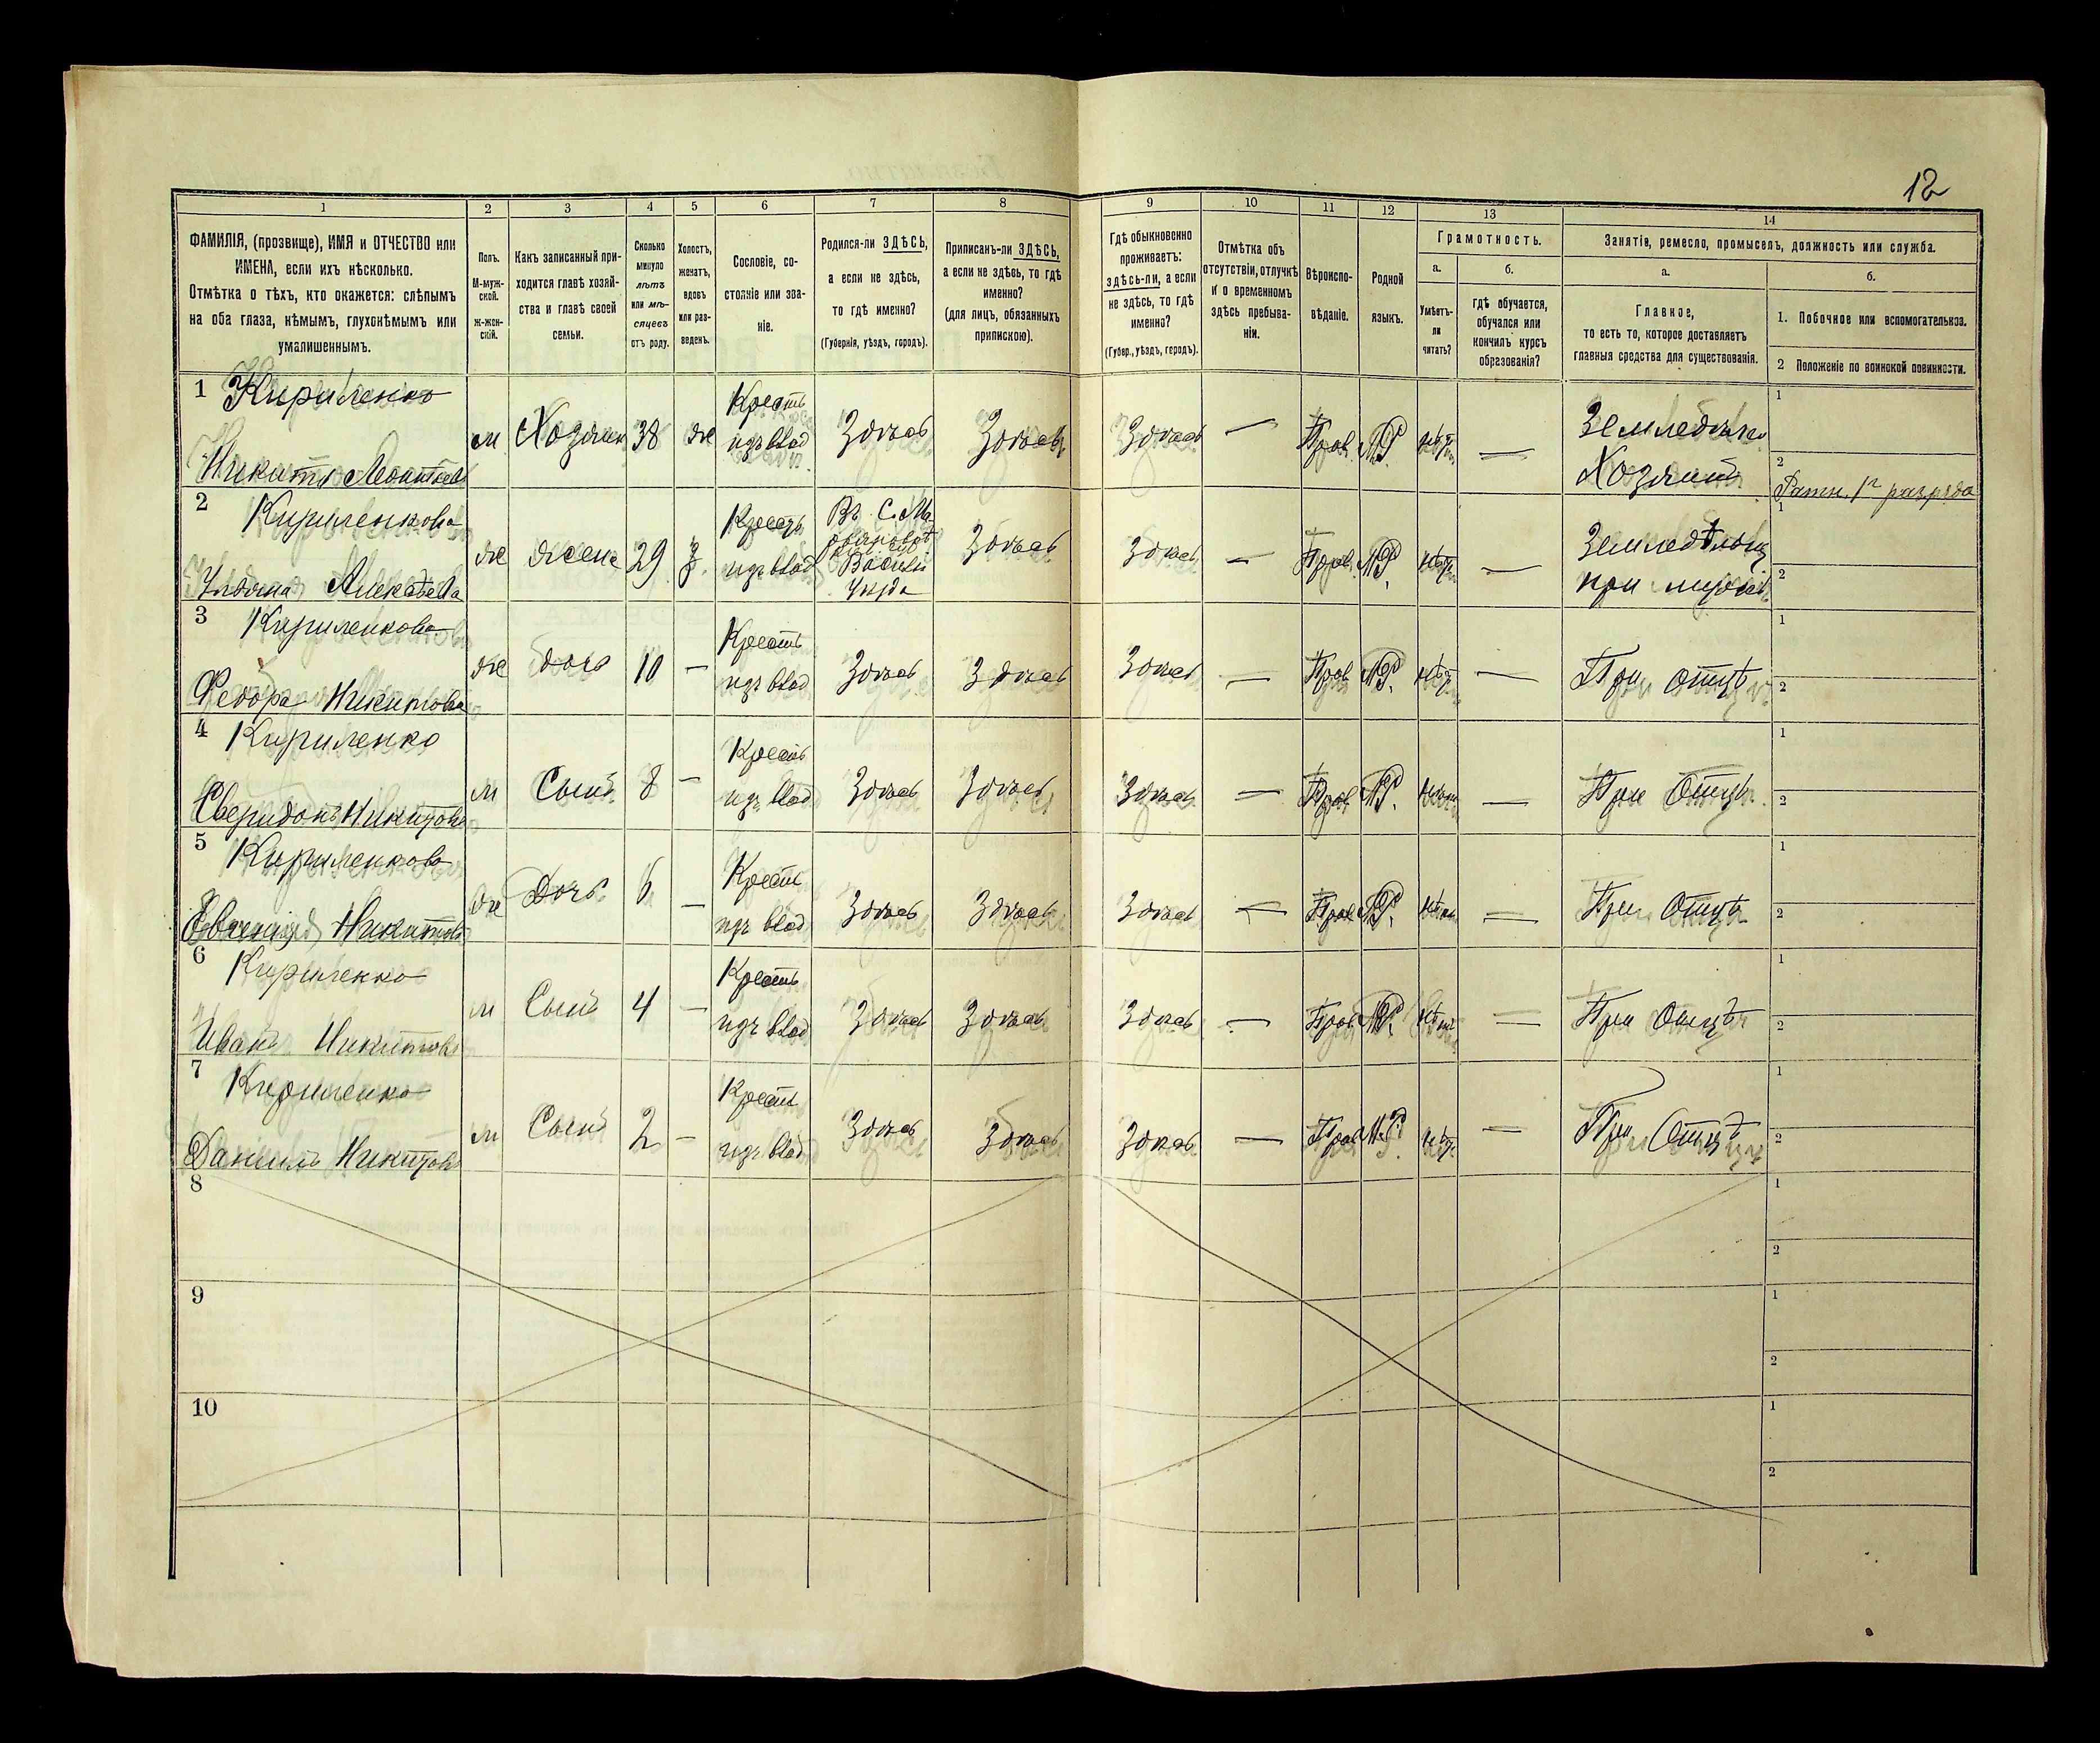 12
1
2
3
4
5
6
7
8
9
10
11
12
13
14
ФАМИЛІЯ, (прозвище), ИМЯ и ОТЧЕСТВО или
ИМЕНА, если ихъ нѣсколько.
Отмѣтка о тѣхъ, кто окажется: слѣпымъ
на оба глаза, нѣмымъ, глухонѣмымъ или
умалишеннымъ.
Полъ.
М-муж-
ской.
ж-жен-
скій.
Какъ записанный при-
ходится главѣ хозяй-
ства и главѣ своей
семьи.
Сколько
минуло
лѣтъ
или мѣ-
сяцевъ
отъ роду.
Холостъ,
женатъ,
вдовъ
или раз-
веденъ.
Сословіе, со-
стояніе или зва-
ніе.
Родился-ли ЗДѢСЬ,
а если не здѣсь,
то гдѣ именно?
(Губернія, уѣздъ, городъ).
Приписанъ-ли ЗДѢСЬ,
а если не здѣсь, то гдѣ
именно?
(для лицъ, обязанныхъ
припискою).
Гдѣ обыкновенно
проживаетъ:
здѣсь-ли, а если
не здѣсь, то гдѣ
именно?
(Губер., уѣздъ, городъ).
Отмѣтка объ
отсутствіи, отлучкѣ
и о временномъ
здѣсь пребыва-
ніи.
Вѣроиспо-
вѣданіе.
Родной
языкъ.
Грамотность.
а.
Умѣетъ-
ли
читать?
б.
гдѣ обучается,
обучался или
кончилъ курсъ
образованія?
Занятіе, ремесло, промыселъ, должность или служба.
а.
Главное,
то есть то, которое доставляетъ
главныя средства для существованія.
б.
1. Побочное или вспомогательное.
2 Положеніе по воинской повинности.
1 Кириленко
Никита
м Хозяин 38 ж Крестъ
изъ влад Здѣсь Здѣсь Здѣсь — Прав. М.Р. — Хозяинъ
1
2 Ратн. 1го разряда
2 Кириленкова
ж жена 29 З. Крестъ
изъ влад Въ С. Здѣсь Здѣсь — Прав. М.Р. —
при мужѣ
1
2
3 Кириленкова
Федора Никитова
ж дочь 10 — Крестъ
изъ влад Здѣсь Здѣсь Здѣсь — Прав М.Р. — При отцѣ
1
2
4 Кириленко
Свиридонъ Никитовъ
м Сынъ 8 — Крестъ
изъ влад Здѣсь Здѣсь Здѣсь — Прав М.Р. — При Отцѣ
1
2
5 Кириленкова
Никитова
ж Дочь 6 — Крестъ
изъ влад Здѣсь Здѣсь Здѣсь — Прав М.Р. — При Отцѣ
1
2
6 Кириленко
Иванъ Никитовъ
м Сынъ 4 — Крестъ
изъ влад Здѣсь Здѣсь Здѣсь — Прав М.Р. — При Отцѣ
1
2
7 Кириленко
Данiилъ Никитовъ
м Сынъ 2 — Крестъ
изъ влад Здѣсь Здѣсь Здѣсь — Прав М.Р. — При Отцѣ
1
2
8
1
2
9
1
2
10
1
2